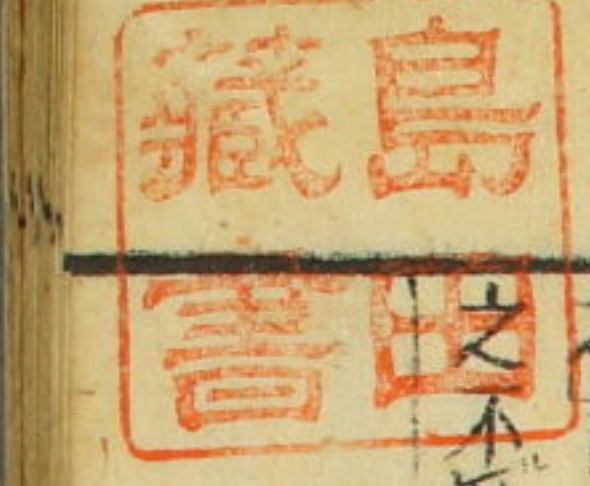 島田
藏書
之不